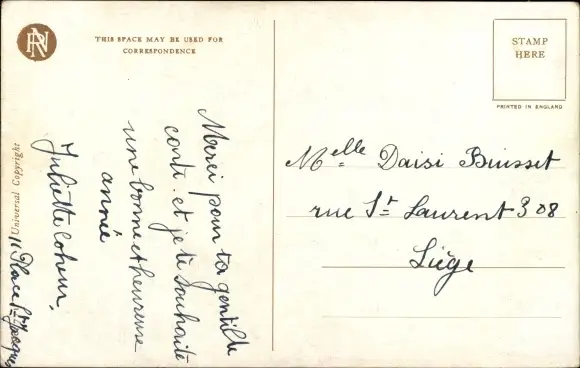 THIS SPACE MAY BE USED FOR
CORRESPONDENCE
STAMP
HERE
PRINTED IN ENGLAND
Merci pour ta gentille
carte. et je te souhaite
une bonne et heureuse
année
Juliette
11 Place St Jacques
Universal Copyright
Melle Daisi Buisset
rue St Laurent 308
Liège